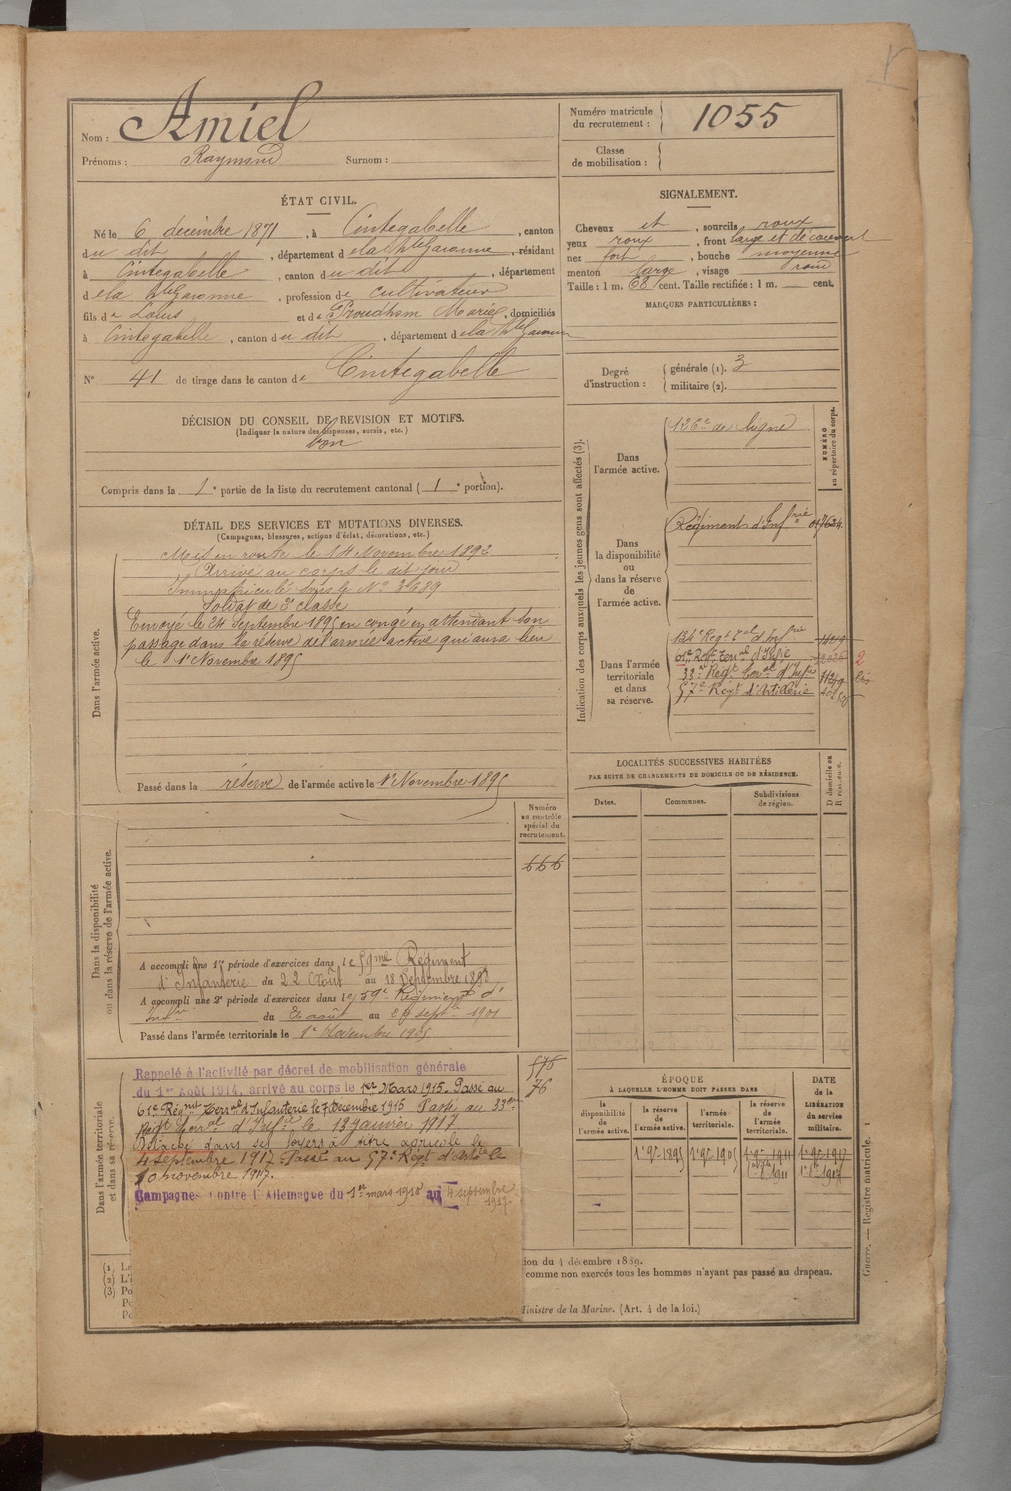 Nom : Amiel
Prénoms : Raymond Surnom :
Numéro matricule du recrutement : 1055
Classe de mobilisation :
ÉTAT CIVIL.
Né le 6 décembre 1871, à Cintegabelle, canton
du dit, département de la Hte Garonne, résidant
à Cintegabelle, canton du dit, département
de la Hte Garonne, profession de cultivateur
fils de Louis et de Proudhom Marie, domiciliés
à Cintegabelle, canton du dit, département de la Hte Garonne
N° 41 de tirage dans le canton de Cintegabelle
SIGNALEMENT.
Cheveux et, sourcils roux
yeux roux, front large et découvert
nez fort, bouche moyenne
menton large, visage rond
Taille : 1 m. 68 cent. Taille rectifiée : 1 m. cent.
MARQUES PARTICULIÈRES :
Degré d'instruction : générale (1). 3
militaire (2).
DÉCISION DU CONSEIL DE REVISION ET MOTIFS.
(Indiquer la nature des dispenses, sursis, etc.)
bon
Compris dans la 1e partie de la liste du recrutement cantonal ( 1e portion).
DÉTAIL DES SERVICES ET MUTATIONS DIVERSES.
(Campagnes, blessures, actions d'éclat, décorations, etc.)
Dans l'armée active.
Mis en route le 14 Novembre 1892
Arrivé au corps le dit jour
Immatriculé sous le No 3689
Soldat de 2e classe
Envoyé le 24 Septembre 1895 en congé en attendant son
passage dans la réserve de l'armée active qui aura lieu
le 1er Novembre 1895
Passé dans la réserve de l'armée active le 1er Novembre 1895
Indication des corps auxquels les jeunes gens sont affectés (3).
NUMÉRO au répertoire du corps.
Dans l'armée active.
126e de ligne
Dans la disponibilité ou dans la réserve de l'armée active.
Régiment d'Infrie
Dans l'armée territoriale et dans sa réserve.
134e Regt Tal d'Infrie
Regt Terral d'Infie
33e Regt Terral d'Infie
57e Regt d'Artillerie
2
bis
LOCALITÉS SUCCESSIVES HABITÉES
PAR SUITE DE CHANGEMENTS DE DOMICILE OU DE RÉSIDENCE.
Dates. Communes. Subdivisions de région. D domicile ou R résidence.
Numéro au contrôle spécial du recrutement.
666
Dans la disponibilité ou dans la réserve de l'armée active.
A accompli une 1re période d'exercices dans le 59me Régiment
d'Infanterie du 22 Août au 18 Septembre 1898
A accompli une 2e période d'exercices dans le 59e Régiment d'
Infie du août au sept 1901
Passé dans l'armée territoriale le 1er Novembre 1905
Dans l'armée territoriale et dans sa réserve.
576
76
Rappelé à l'activité par décret de mobilisation générale
du 1er Août 1914, arrivé au corps le 1er Mars 1915. Passé au
61e Régmt Terral d'Infanterie le 7 décembre 1915 Passé au 33me
Regt Terral d'Infie le 13 janvier 1917
Détaché dans ses foyers à titre agricole le
4 septembre 1917 Passé au 57e Régt d'Artie le
10 novembre 1917.
Campagnes contre l'Allemagne du 1er mars 1915 au 4 septembre
1917
ÉPOQUE
À LAQUELLE L'HOMME DOIT PASSER DANS
la disponibilité de l'armée active. la réserve de l'armée active. l'armée territoriale. la réserve de l'armée territoriale.
DATE de la LIBÉRATION du service militaire.
1er 9bre 1895 1er 9bre 1905 1er 9bre 1911 1er 9bre 1917
(1) Le
(2) L'i
(3) Po
Po
Po
ion du 4 décembre 1889.
comme non exercés tous les hommes n'ayant pas passé au drapeau.
Ministre de la Marine. (Art. 4 de la loi.)
Guerre. — Registre matricule. 1